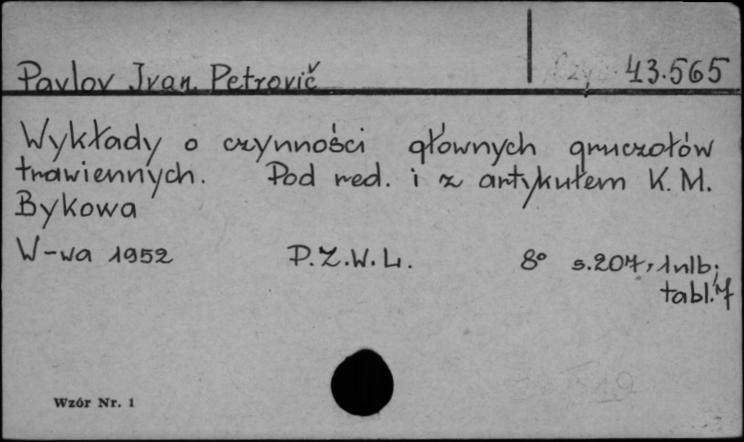 Pavlov Ivan Petrovič 43.565
Wykłady o czynności głównych gruczołów
trawiennych. Pod red. i z artykułem K. M.
Bykowa
W-wa 1952 P.Z.W.L. 8° s.207, 1nlb;
tabl.7
Wzór Nr. 1